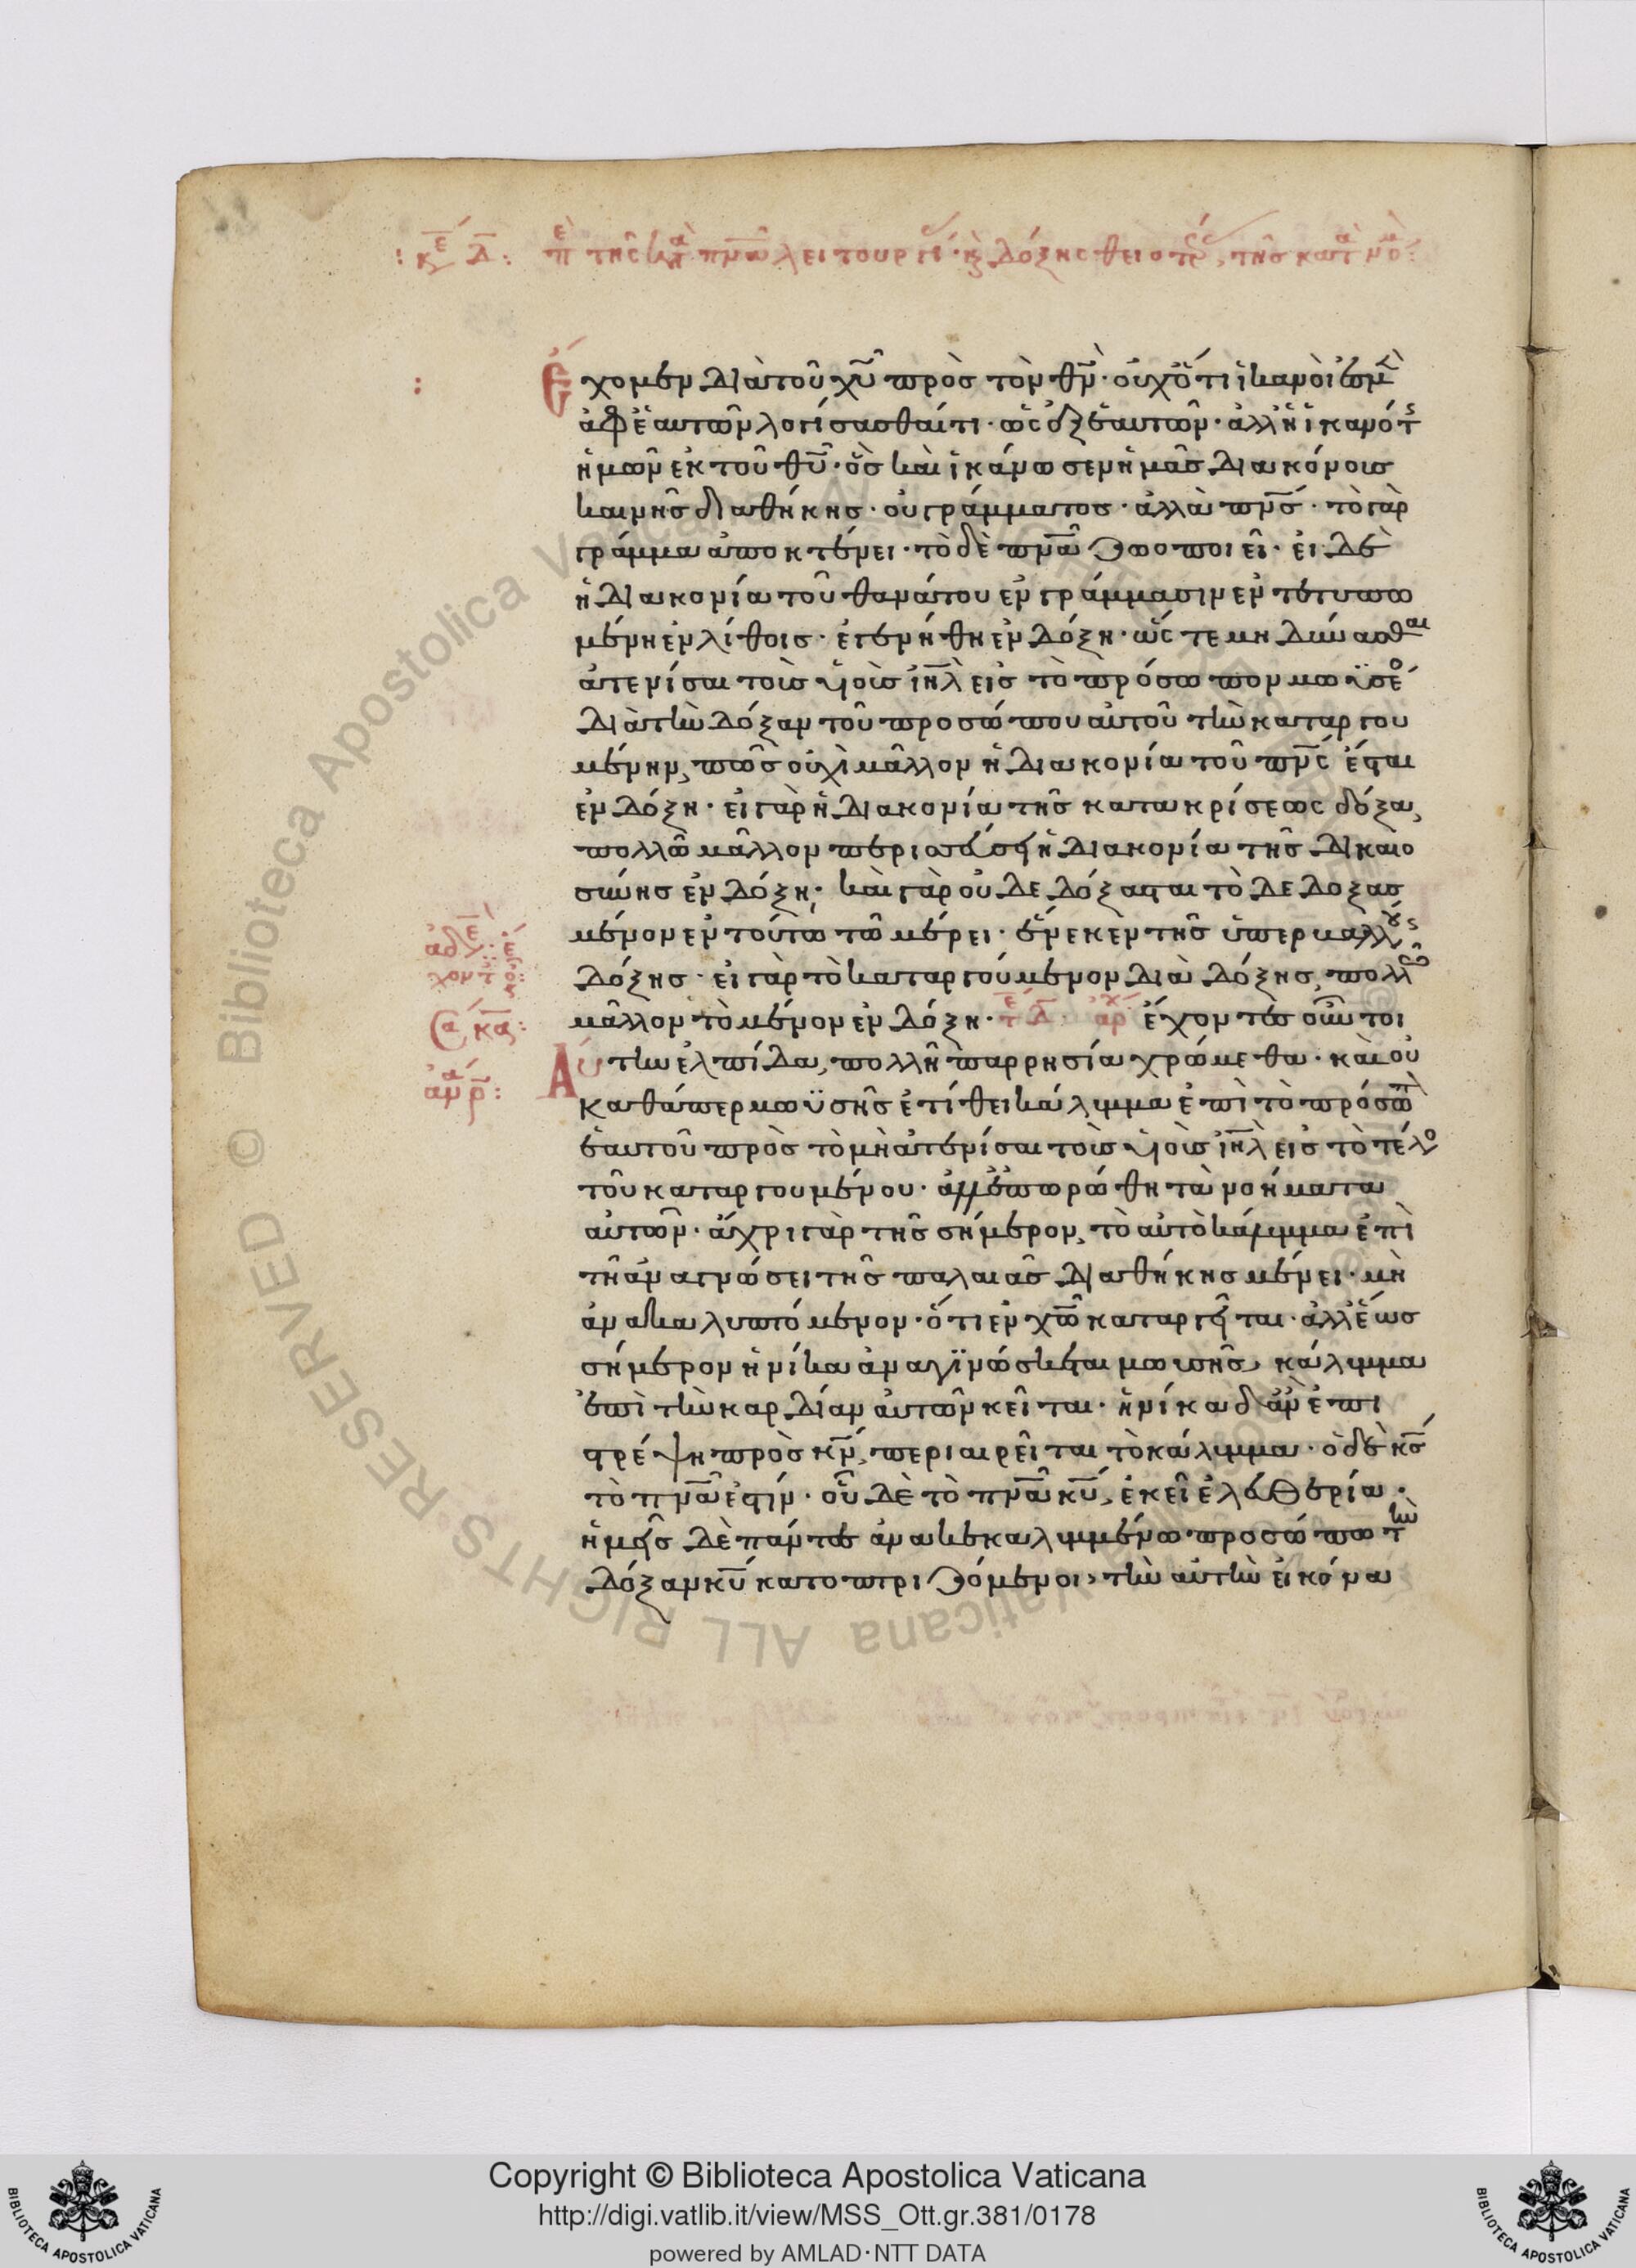 : κε δ : επ της κατα πνα λειτουργί · κ δόξης θειοτρς, της κατα μο :
ἔχομεν διὰ τοῦ χυ πρὸς τὸν θν · οὐχ ὅτι ἱκανοί ἐσμὲ
ἀφ ἑαυτῶν λογίσασθαί τι · ὡς ἐξ ἑαυτῶν · ἀλλ ἡ ἱκανότς
ἡμῶν ἐκ τοῦ θυ · ὃς καὶ ἱκάνωσεν ἡμᾶς διακόνους
καινῆς διαθήκης · οὐ γράμματος · ἀλλὰ πνς · τὸ γὰρ
γράμμα ἀποκτένει · τὸ δὲ πνα ζωοποιεῖ · εἰ δὲ
ἡ διακονία τοῦ θανάτου ἐν γράμμασιν ἐντετυπω
μένη ἐν λίθοις · ἐγενήθη ἐν δόξη · ὥς τε μη δύνασθαι
ἀτενίσαι τοὺς υἱοὺς ιηλ εἰς τὸ πρόσωπον μωϋσέο
διὰ τὴν δόξαν τοῦ προσώπου αὐτοῦ τὴν καταργου
μένην, πῶς οὐχὶ μᾶλλον ἡ διακονία τοῦ πνς ἔσται
ἐν δόξη · εἰ γὰρ ἡ διακονία τῆς κατακρίσεως δόξα,
πολλῶ μᾶλλον περισσεύει ἡ διακονία τῆς δικαιο
σύνης ἐν δόξη · καὶ γὰρ οὐ δεδόξασται τὸ δεδοξασ
μένον ἐν τούτω τῶ μέρει · ἕνεκεν τῆς ὑπερβαλλούς
δόξης · εἰ γὰρ τὸ καταργούμενον διὰ δόξης, πολλῶ
μᾶλλον τὸ μένον ἐν δόξη · τε δ αρχ ἔχοντες οὖν τοι
αύτην ἐλπίδα, πολλῆ παρρησία χρώμεθα · καὶ οὐ
καθάπερ μωϋσῆς ἐτίθει κάλυμμα ἐπὶ τὸ πρόσωπ
ἑαυτοῦ πρὸς τὸ μὴ ἀτενίσαι τοὺς υἱοὺς ιηλ εἰς τὸ τέλο
τοῦ καταργουμένου · ἀλλ ἐπωρώθη τὰ νοήματα
αὐτῶν · ἄχρι γὰρ τῆς σήμερον, τὸ αὐτὸ κάλυμμα ἐπὶ
τῆ ἀναγνώσει τῆς παλαιᾶς διαθήκης μένει · μὴ
ἀνακαλυπτόμενον · ὅτι ἐν χω καταργεῖται · ἀλλ ἕως
σήμερον ἡνίκα ἀναγϊνώσκεται μωυσῆς, κάλυμμα
ἐπὶ τὴν καρδίαν αὐτῶν κεῖται · ἡνίκα δ ἂν ἐπι
στρέψη πρὸς κν, περιαιρεῖται τὸ κάλυμμα · ὁ δὲ κς
τὸ πνα ἐστίν · οὗ δὲ τὸ πνα κυ, ἐκεῖ ἐλευθερία ·
ἡμεῖς δὲ πάντες ἀνακεκαλυμμένω προσώπω τὴν
δόξαν κυ κατοπτριζόμενοι, τὴν αὐτὴν εἰκόνα
αδε
Σα κα :
Copyright © Biblioteca Apostolica Vaticana
http://digi.vatlib.it/view/MSS_Ott.gr.381/0178
powered by AMLAD·NTT DATA
BIBLIOTECA APOSTOLICA VATICANA
BIBLIOTECA APOSTOLICA VATICANA
© Biblioteca Apostolica Vaticana ALL RIGHTS RESERVED